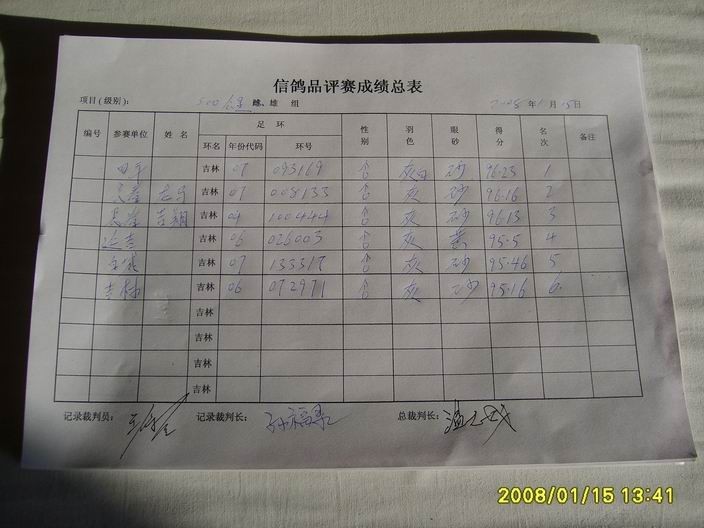 信鸽品评赛成绩总表
项目(级别): 500公里 雄 组 2008年1月15日
编号 参赛单位 姓名 足环 性别 羽色 眼砂 得分 名次 备注
环名 年份代码 环号
四平 吉林 07 093169 ♂ 灰白 砂 96.25 1
吉林 07 008133 ♂ 灰 砂 96.16 2
吉林 04 100444 ♂ 灰 砂 96.13 3
延吉 吉林 06 026003 ♂ 灰 黄 95.5 4
吉林 07 133317 ♂ 灰 砂 95.46 5
吉林 吉林 06 072971 ♂ 灰 砂 95.16 6
吉林
吉林
吉林
吉林
记录裁判员: 记录裁判长: 总裁判长:
2008/01/15 13:41